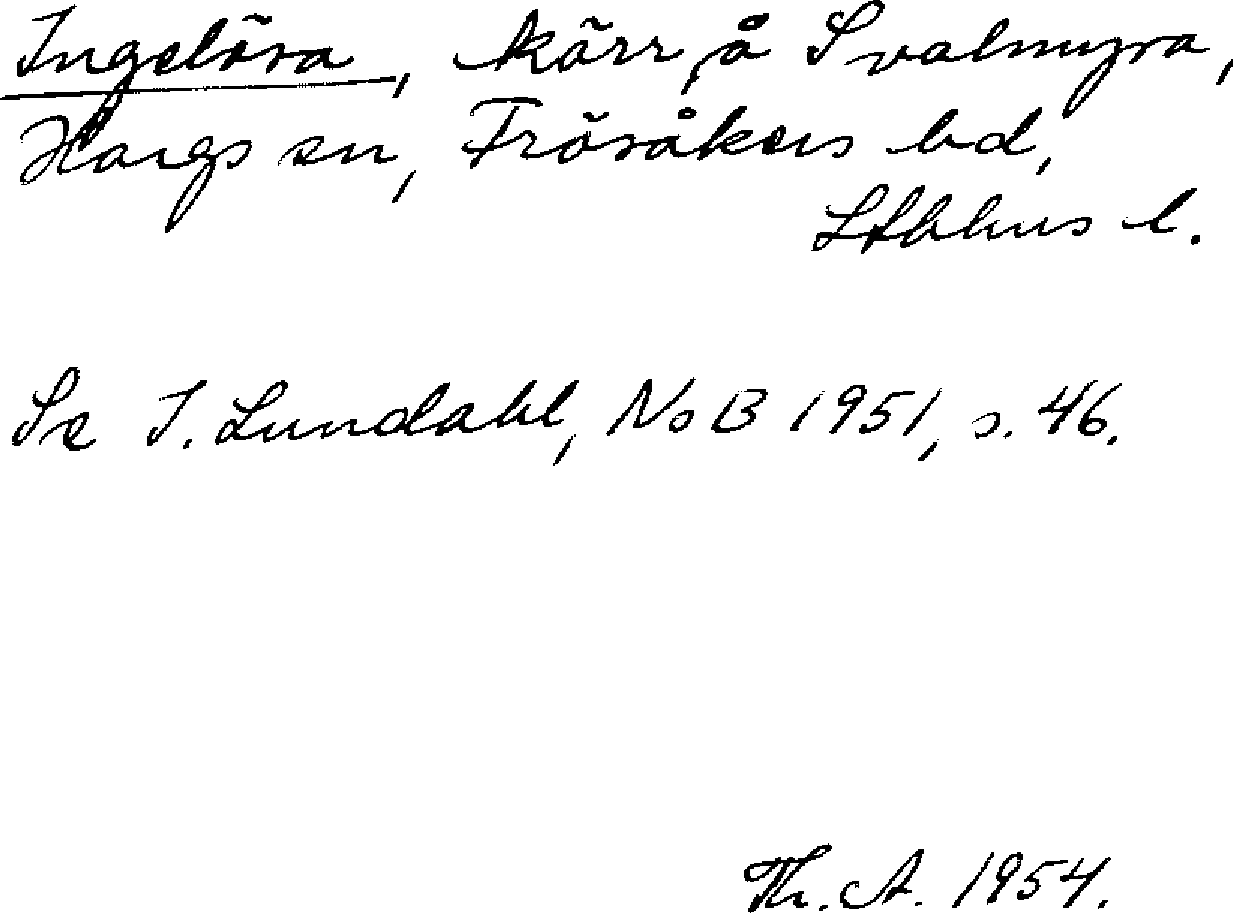 Ingelösa, kärr, å Svalmyra,
Hargs sn, Frösåkers hd,
Sthlms l.
Se I. Lundahl, NoB 1951, s. 46.
Th. A. 1954.